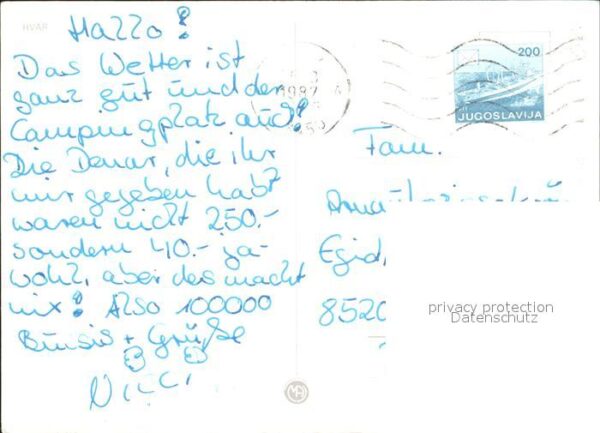 HVAR
Hallo!
Das Wetter ist
ganz gut und der
Campingplatz auch!
Die Denar, die ihr
mir gegeben habt
waren nicht 250.-
sondern 40.- ja-
wohl, aber des macht
nix! Also 100000
Bussis + Grüße
Nicci
200
JUGOSLAVIJA
1987
Fam.
Egid
8520
privacy protection
Datenschutz